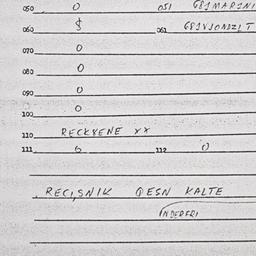 050 0 051 681MARINI
060 $ 061 681VJONIZI T
070 0
080 0
090 0
100 0
110 RECKVENE XX
111 6 112 0
RECISNIK QESN KALTE